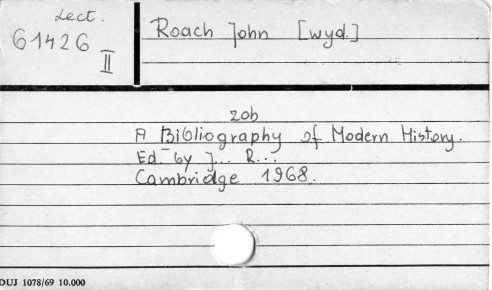 Lect.
61426
II
Roach John [wyd.]
zob
A Bibliography of Modern History.
Ed. by J... R...
Cambridge 1968.
DUJ 1078/69 10.000